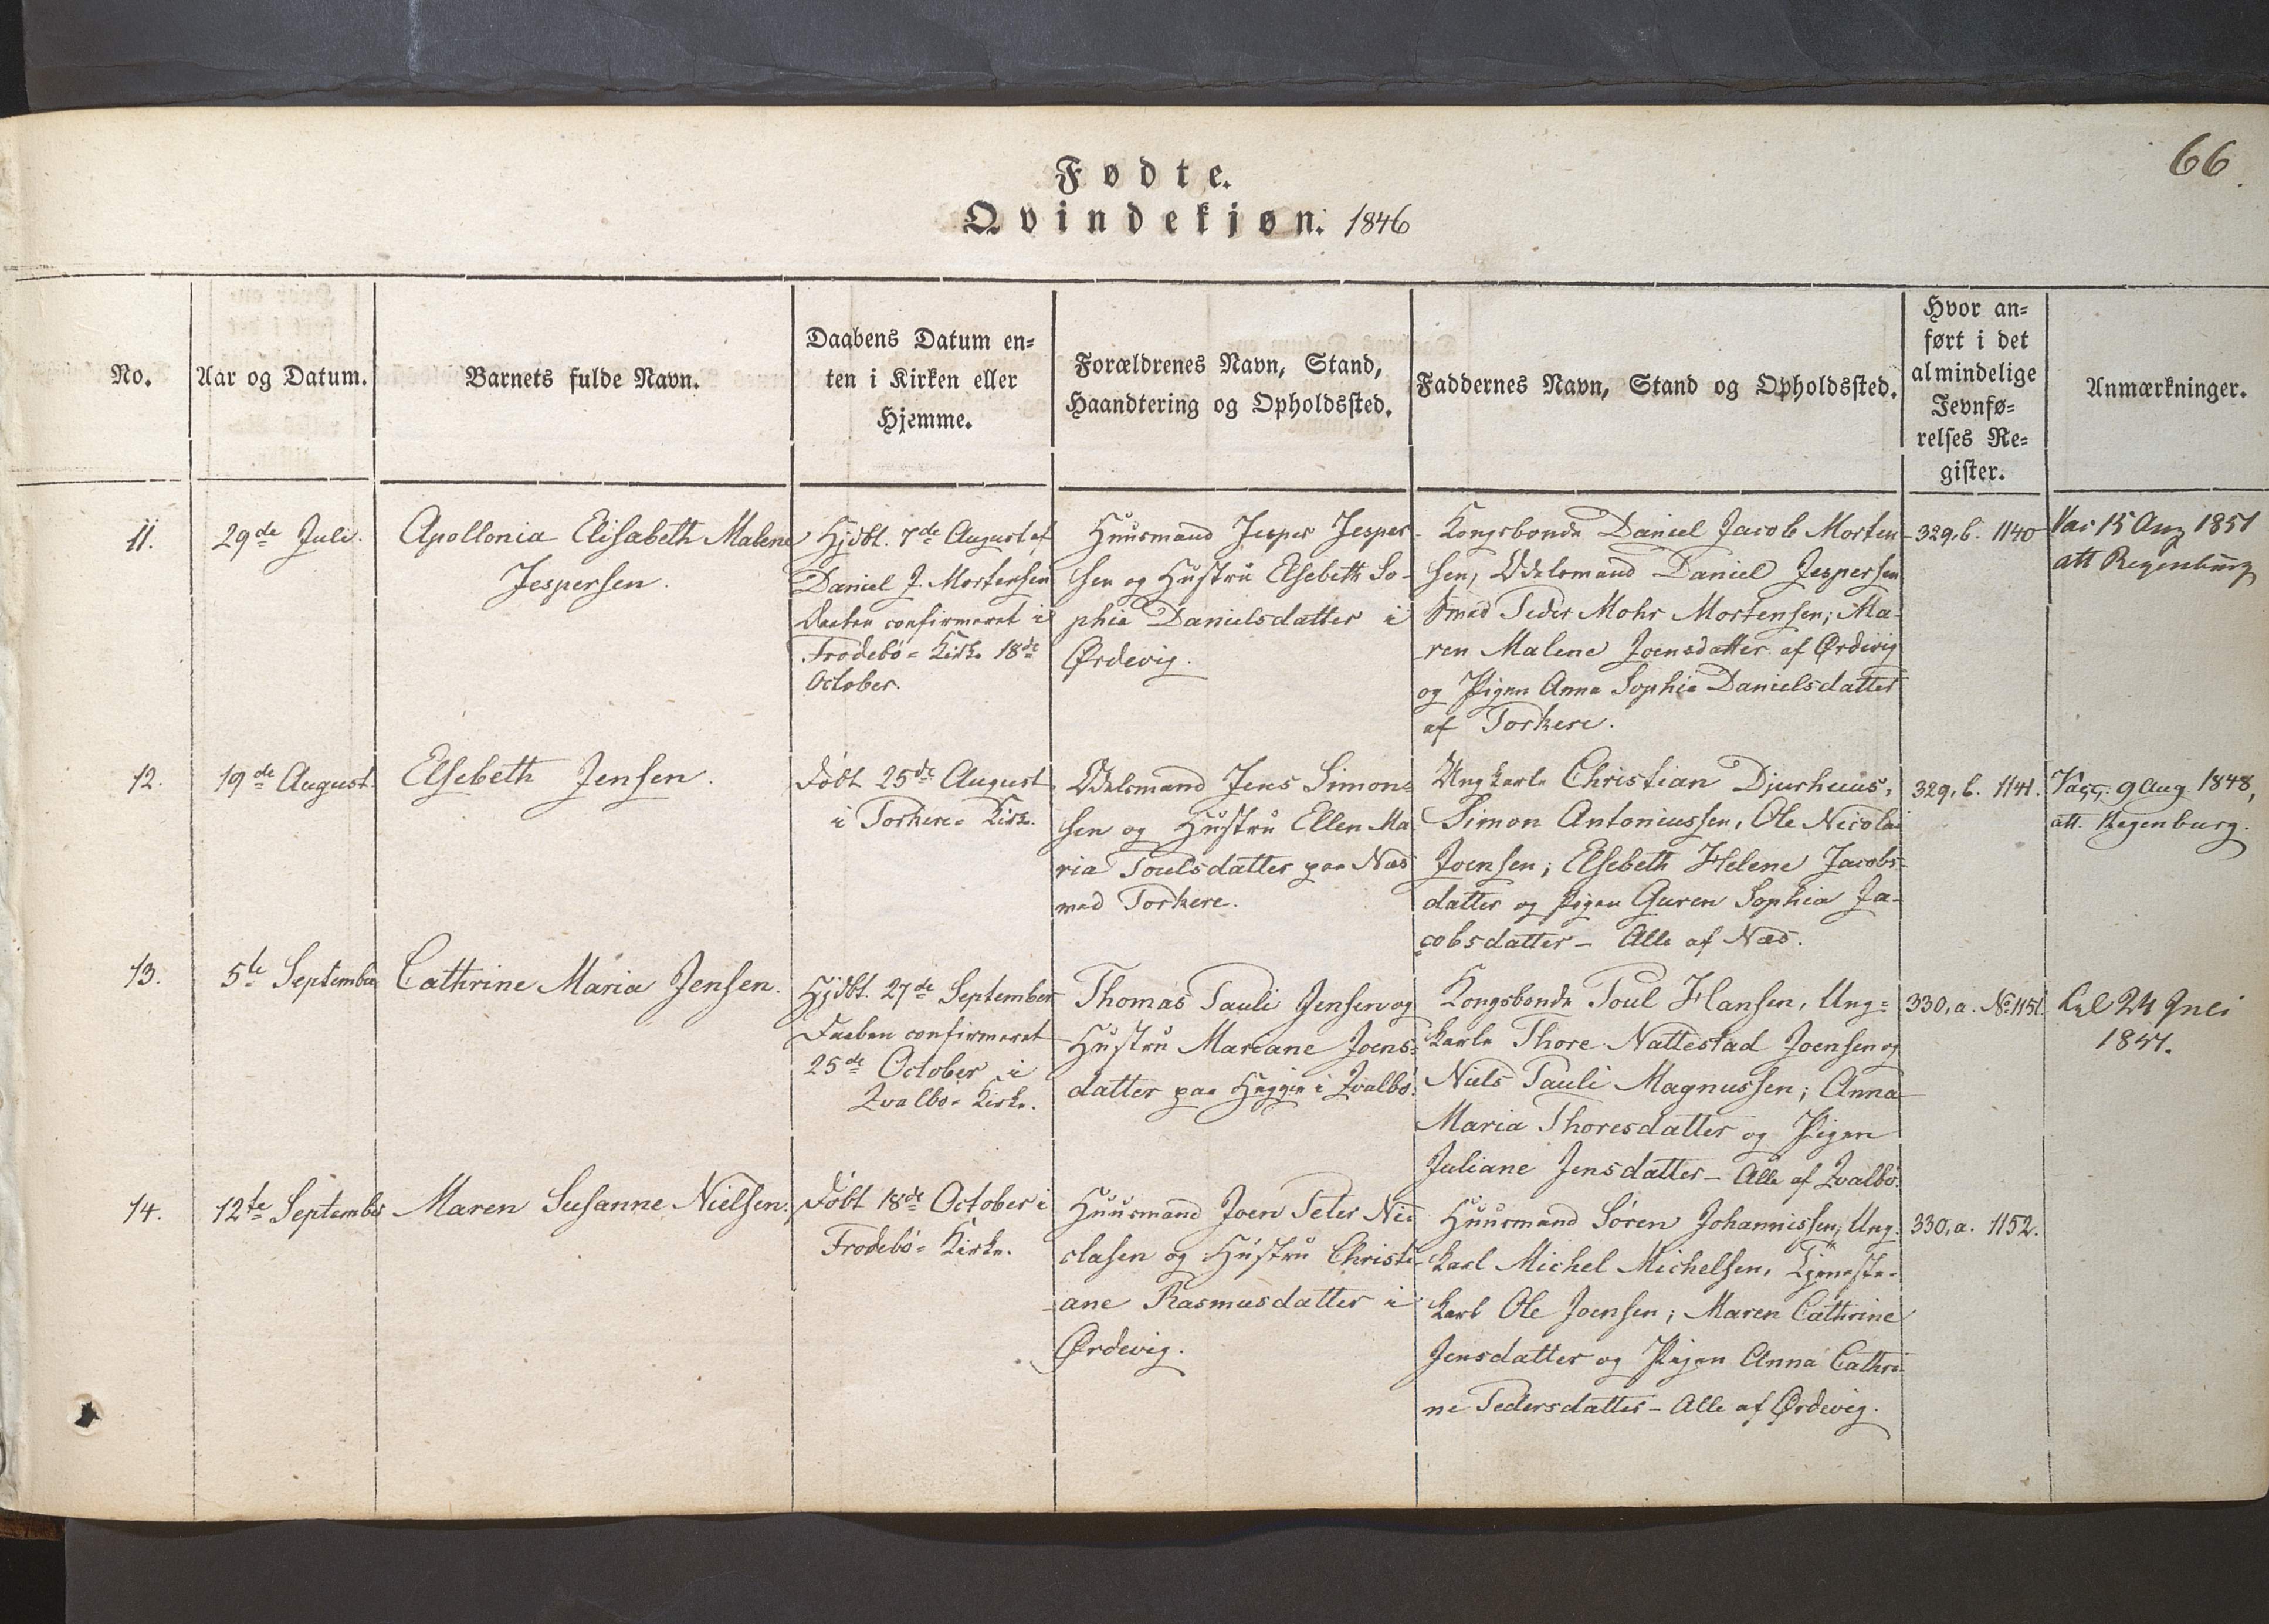 66.
Fødte.
Qvindekjøn. 1846
No.
Aar og Datum.
Barnets fulde Navn.
Daabens Datum en=
ten i Kirken eller
Hjemme.
Forældrenes Navn, Stand,
Haandtering og Opholdssted.
Faddernes Navn, Stand og Opholdssted.
Hvor an=
ført i det
almindelige
Jevnfø=
relses Re=
gister.
Anmærkninger.
11.
29de Juli.
Apollonia Elisabeth Malene
Jespersen.
Hjdbt. 7de August af
Daniel J. Mortensen
Daaben confirmeret i
Frodebø= Kirke 18de
October.
Huusmand Jesper Jesper-
sen og Hustru Elsebeth So-
phia Danielsdatter i
Ørdevig.
Kongsbonde Daniel Jacob Morten-
sen, Odelsmand Daniel Jespersen
Smed Peder Mohr Mortensen; Ma-
ren Malene Joensdatter af Ørdevig
og Pigen Anna Sophia Danielsdatter
af Porkere.
329, b. 1140
Vac 15 Aug 1851
att Regenburg
12.
19de August.
Elsebeth Jensen.
Døbt 25de August
i Porkere= Kirk.
Odelsmand Jens Simon=
sen og Hustru Ellen Ma
ria Poulsdatter paa Næs
ved Porkere.
Ungkarle Christian Djurhuus,
Simon Antoniussen, Ole Nicolai
Joensen; Elsebeth Helene Jacobs-
datter og Pigen Guren Sophia Ja-
cobsdatter - Alle af Næs.
329, b. 1141.
Vacc. 9 Aug 1848,
att. Regenburg.
13.
5te September
Cathrine Maria Jensen.
Hjdbt. 27de September
Daaben confirmeret
25de October i
Qvalbø= Kirke.
Thomas Pauli Jensen og
Hustru Mariane Joens=
datter paa Heygen i Qvalbø.
Kongsbonde Poul Hansen, Ung=
karle Thore Nattestad Joensen og
Niels Pauli Magnussen; Anna
Maria Thoresdatter og Pigen
Juliane Jensdatter - Alle af Qvalbø.
330, a. No 1151.
24 Juli
1847.
14.
12te September
Maren Susanne Nielsen.
Døbt 18de October i
Frodebø= Kirke.
Huusmand Joen Peter Nic
olasen og Hustru Christi-
ane Rasmusdatter i
Ørdevig.
Huusmand Søren Johannissen, Ung-
karl Michel Michelsen, Tjeneste-
karl Ole Joensen; Maren Cathrine
Jensdatter og Pigen Anna Cathri
ne Pedersdatter - Alle af Ørdevig.
330, a. 1152.